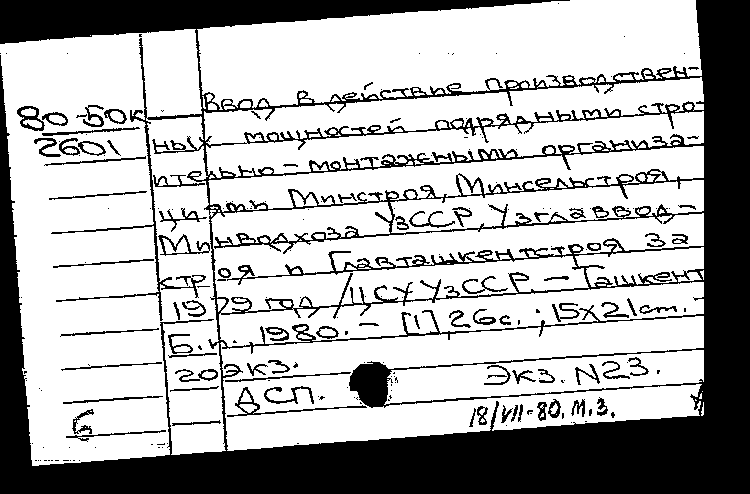 80-50к
2601
Ввод в действие производствен-
ных мощностей подрядными строи-
тельно-монтажными организа-
циями Минстроя, Минсельстроя,
Минводхоза УзССР, Узглавводс-
строя и Главташкентстроя за
1979 год / ЦСУ УзССР. – Ташкент
Б.и., 1980. – [1], 26с.; 15х21см. –
20экз.
ДСП. Экз. N23.
6 18/VII-80. М.З.